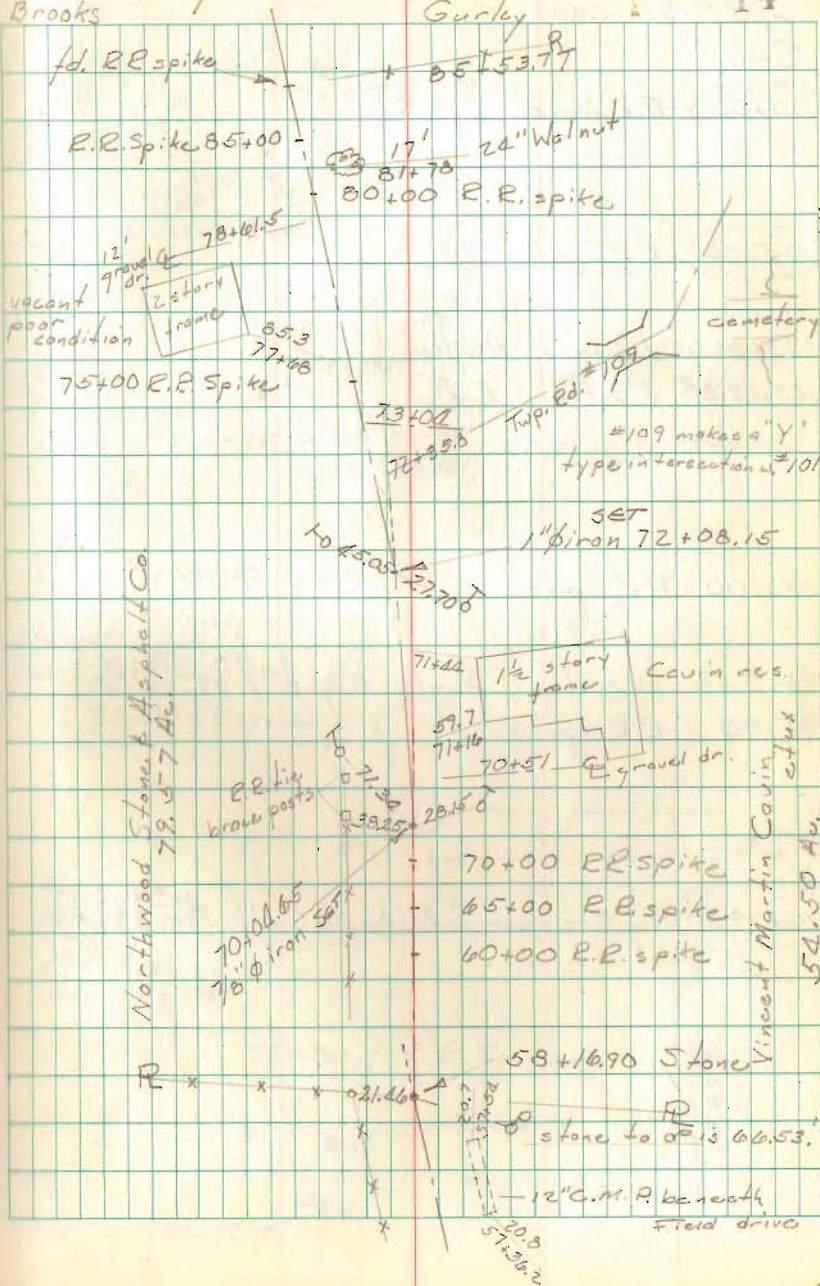 Brooks
Gurley
14
fd. R.R. spike
85+53.77
R.R. Spike 85+00
17'
81+78
24" Walnut
80+00 R.R. spike
78+61.5
12'
gravel
dr.
vacant
poor
condition
2 story
frame
85.3
77+68
75+00 R.R. Spike
cemetery
73+04
Twp. Rd. #109
72+35.8
#109 makes a "Y"
type intersection w. #101
SET
1"ϕ iron 72+08.15
45.05
27.70
Northwood Stone & Asphalt Co.
79.57 Ac.
71+44
1½ story
frame
Cavin res.
59.7
71+16
70+51 ℄ gravel dr.
R.R. tie
brace posts
71.34
38.25
28.15
70+00 R.R. spike
65+00 R.R. spike
60+00 R.R. spike
70+04.65
7/8"ϕ iron set
Vincent Martin Cavin
etux
54.50 Ac.
58+16.90 Stone
PL
21.46
PL
20.7
57+54
stone to is 66.53'
12" C.M.P. beneath
Field drive
20.8
57+36.2